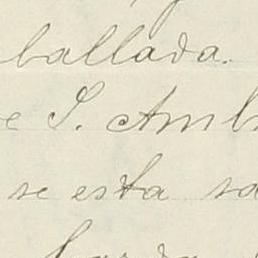 ballada.
e S. Amb
se esta sa